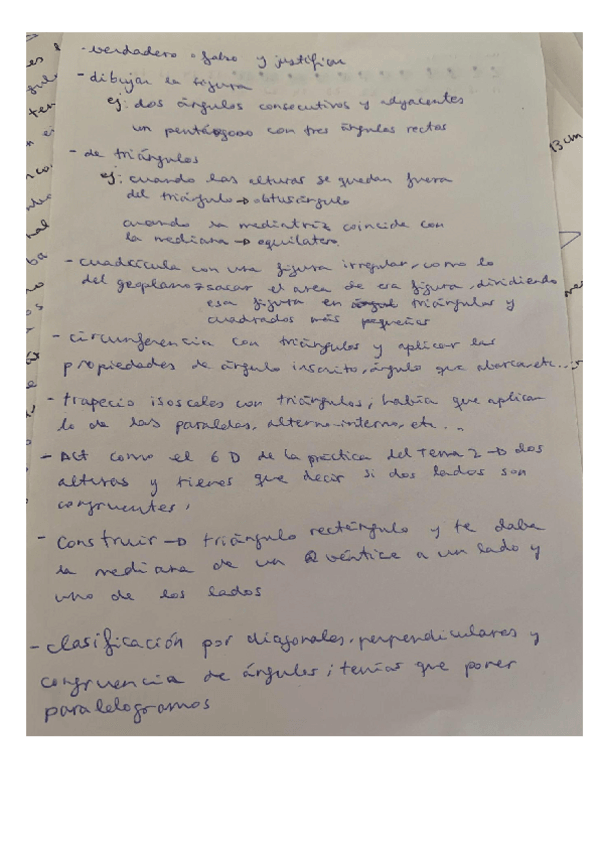 - verdadero o falso y justificar
- dibujar la figura
ej: dos ángulos consecutivos y adyacentes
un pentágono con tres ángulos rectos
- de triángulos
ej: cuando las alturas se quedan fuera
del triángulo → obtusángulo
cuando la mediatriz coincide con
la mediana → equilatero.
- cuadrícula con una figura irregular, como lo
del geoplano → sacar el area de esa figura, dividiendo
esa figura en triángulos y
cuadrados más pequeños
- circunferencia con triángulos y aplicar las
propiedades de ángulo inscrito, ángulo que abarca, etc...
- trapecio isosceles con triángulos, había que aplicar
lo de las paralelas, alterno-interno, etc...
- Act como el 6 D de la práctica del Tema 2 → dos
alturas y tienes que decir si dos lados son
congruentes,
- Construir → triángulo rectángulo y te daba
la mediana de un vértice a un lado y
uno de los lados
- clasificación por diagonales, perpendiculares y
congruencia de ángulos; tenías que poner
paralelogramos
13 cm